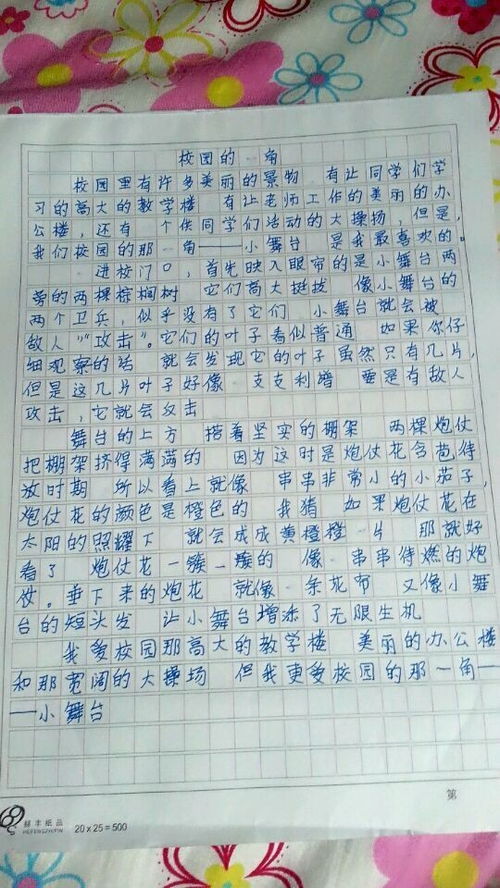 校园的一角
校园里有许多美丽的景物 有让同学们学
习的高大的教学楼 有让老师工作的美丽的办
公楼,还有一个供同学们活动的大操场,但是,
我们校园的那一角——小舞台 是我最喜欢的。
一进校门口,首先映入眼帘的是小舞台两
旁的两棵棕榈树 它们高大挺拔 像小舞台的
两个卫兵,似乎没有了它们 小舞台就会被
敌人"攻击"。它们的叶子看似普通 如果你仔
细观察的话 就会发现它的叶子虽然只有几片,
但是这几片叶子好像一支支利箭 要是有敌人
攻击,它就会反击
舞台的上方 搭着坚实的棚架 两棵炮仗
把棚架挤得满满的 因为这时是炮仗花含苞待
放时期 所以看上就像一串串非常小的小茄子,
炮仗花的颜色是橙色的 我猜 如果炮仗花在
太阳的照耀下 就会成成黄橙橙一片 那就好
看了 炮仗花一簇一簇的 像一串串待燃的炮
仗。垂下来的炮花 就像一条花布 又像小舞
台的短头发 让小舞台增添了无限生机
我爱校园那高大的教学楼 美丽的办公楼
和那宽阔的大操场 但我更爱校园的那一角—
—小舞台
第
纸品
20×25=500